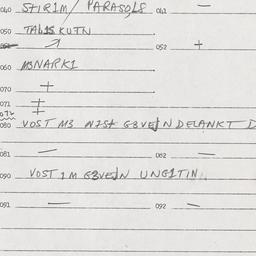 040 STIR1M/ PARASOL8 041 —
050 TAL1S KUTN
052 +
060 M3NARK1
070 +
071 ‡
072
080 VOST M3 G3VEJN DELANKT D
081 — 082 —
090 VOST 1M G3VEJN UNG1TIN
091 — 092 –